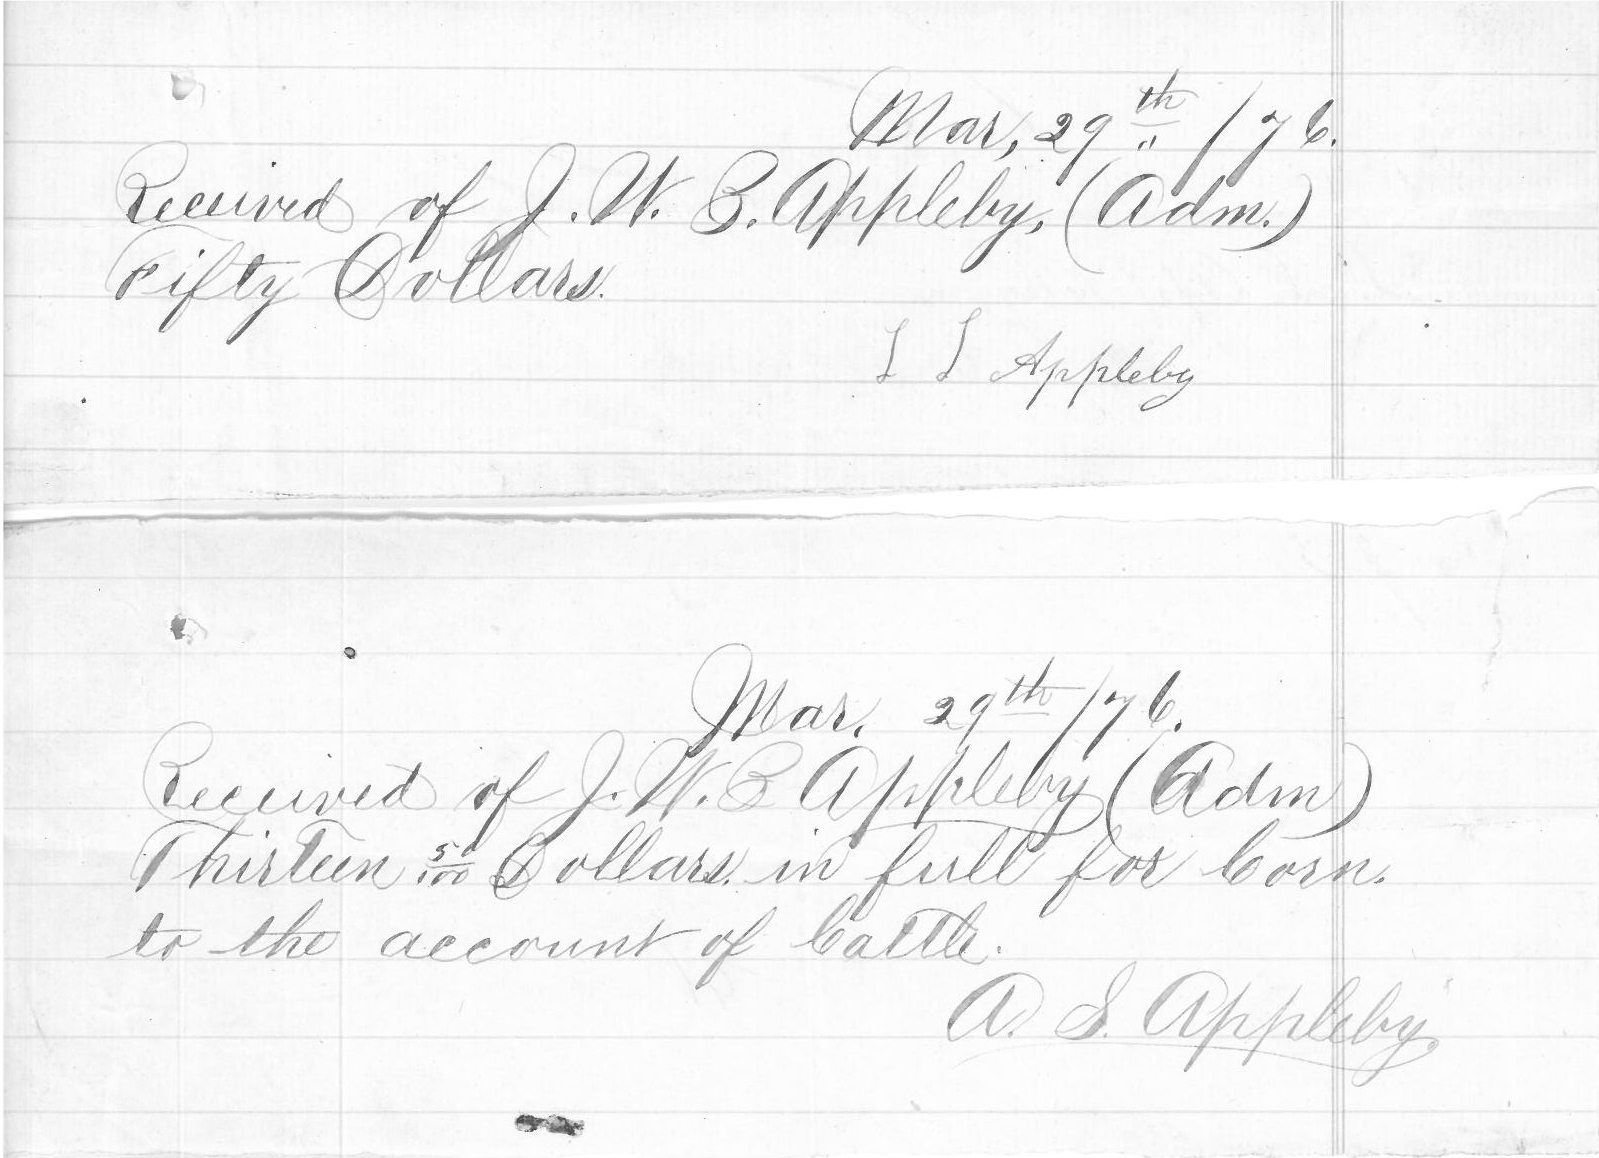 Mar, 29th /76.
Received of J. W. B. Appleby, (Adm.)
Fifty Dollars.
Appleby
Mar. 29th /76.
Received of J. W. B Appleby (Adm)
Thirteen Dollars. in full for Corn.
to the account of Cattle.
A. S. Appleby